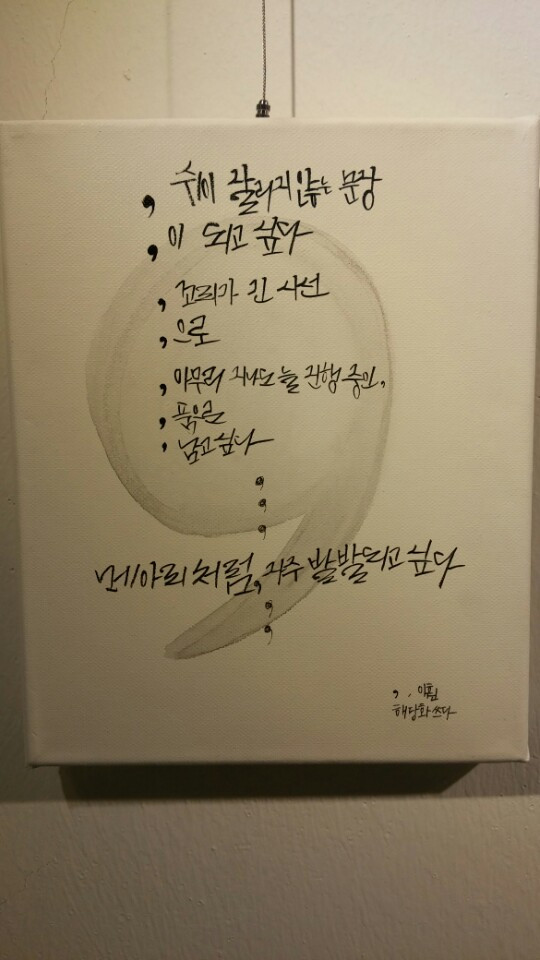 , 쉬이 잘리지 않는 문장
, 이 되고 싶다
, 꼬리가 긴 시선
, 으로
, 아무리 지나도 늘 진행 중인,
,
, 남고 싶다
,
,
,
메아리처럼, 자주 발발되고 싶다
,
,
, .
해당화 쓰다